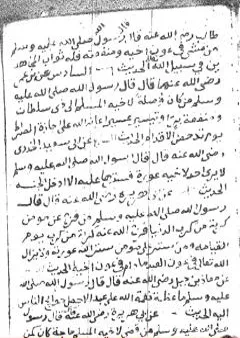 طالب رضي الله عنه قال قال رسول الله صلى الله عليه وسلم
من مشى في عون اخيه ومنفعته فله ثواب المجاهدين
في سبيل الله الحديث السادس عن ابن عمر
رضي الله عنهما قال قال رسول الله صلى الله عليه
وسلم من كان وصلة لاخيه المسلم الى ذي سلطان
ومنفعة بر او تيسير عسير اعانه الله على اجازة الصراط
يوم تدحض الاقدام الحديث عن ابي سعيد الخدري
رضي الله عنه قال قال رسول الله صلى الله عليه وسلم
لا يرى احد لاخيه عورة فيسترها عليه الا ادخل الجنة
الحديث عن ابي هريرة رضي الله عنه قال قال
رسول الله صلى الله عليه وسلم من فرج عن مؤمن
كربة من كرب الدنيا فرج الله عنه كربة من كرب يوم
القيامة ومن ستر على مؤمن ستر الله عورته ولا يزال
الله تعالى في عون العبد ما دام في عون اخيه الحديث
عن معاذ بن جبل رضي الله عنه قال قال رسول الله صلى الله
عليه وسلم ما عظمت نعمة الله على عبد الا عظمت حوائج الناس
اليه الحديث عن ابي هريرة رضي الله عنه قال قال رسول
صلى الله عليه وسلم من قضى لاخيه المسلم حاجة كان كمن